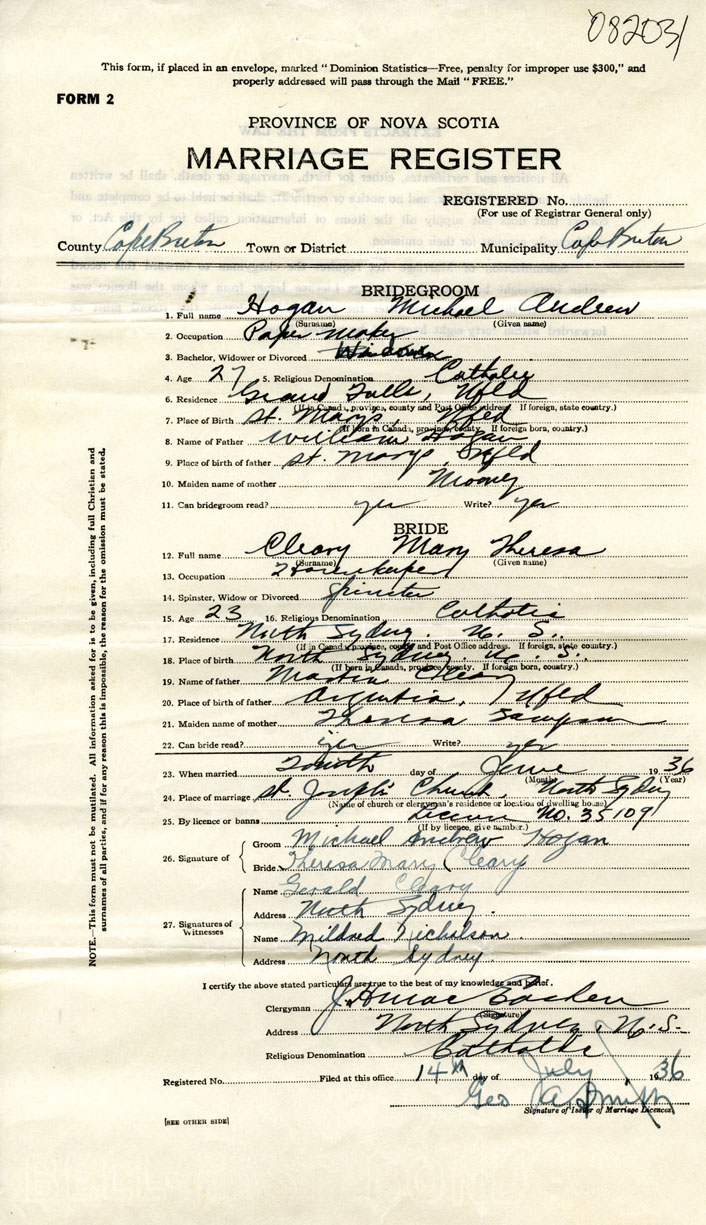 082031
This form, if placed in an envelope, marked "Dominion Statistics—Free, penalty for improper use $300," and
properly addressed will pass through the Mail "FREE."
FORM 2
PROVINCE OF NOVA SCOTIA
MARRIAGE REGISTER
REGISTERED No.
(For use of Registrar General only)
County Cape Breton Town or District Municipality Cape Breton
BRIDEGROOM
1. Full name Hogan Michael Andrew
(Surname) (Given name)
2. Occupation Paper Maker
3. Bachelor, Widower or Divorced Widower
4. Age 27 5. Religious Denomination Catholic
6. Residence Grand Falls, Nfld
(If in Canada, province, county and Post Office address. If foreign, state country.)
7. Place of Birth St. Marys, Nfld
(If born in Canada, province, county. If foreign born, country.)
8. Name of Father William Hogan
9. Place of birth of father St. Marys, Nfld
10. Maiden name of mother Mooney
11. Can bridegroom read? yes Write? yes
BRIDE
12. Full name Cleary Mary Theresa
(Surname) (Given name)
13. Occupation Housekeeper
14. Spinster, Widow or Divorced Spinster
15. Age 23 16. Religious Denomination Catholic
17. Residence North Sydney. N. S.
(If in Canada, province, county and Post Office address. If foreign, state country.)
18. Place of birth North Sydney. N. S.
(If born in Canada, province, county. If foreign born, country.)
19. Name of father Martin Cleary
20. Place of birth of father Argentia, Nfld
21. Maiden name of mother Theresa Sampson
22. Can bride read? yes Write? yes
23. When married day of June 1936
(Month) (Year)
24. Place of marriage St. Joseph's Church, North Sydney
(Name of church or clergyman's residence or location of dwelling house)
25. By licence or banns License No. 35109
(If by licence, give number.)
26. Signature of
Groom Michael Andrew Hogan
Bride Theresa Mary Cleary
27. Signatures of Witnesses
Name Gerald Cleary
Address North Sydney.
Name Mildred Nicholson
Address North Sydney.
I certify the above stated particulars are true to the best of my knowledge and belief.
Clergyman J. H. Mac
(Signature)
Address North Sydney, N. S.
Religious Denomination Catholic
Registered No. Filed at this office 14th day of July 1936
Geo A Smith
Signature of Issuer of Marriage Licences
[SEE OTHER SIDE]
NOTE.—This form must not be mutilated. All information asked for is to be given, including full Christian and
surnames of all parties, and if for any reason this is impossible, the reason for the omission must be stated.